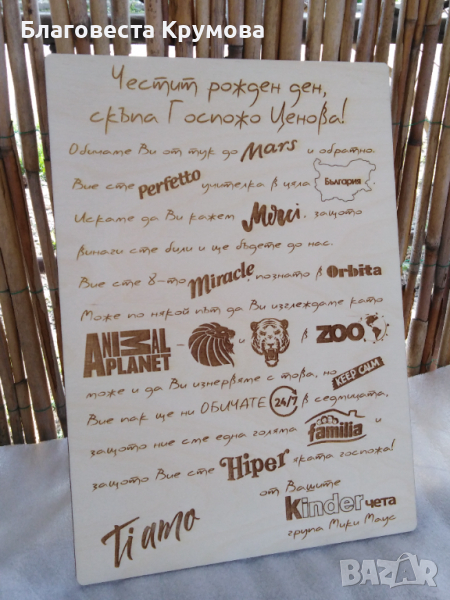 Благовеста Крумова
Честит рожден ден,
скъпа Госпожо Ценова!
Обичаме Ви от тук до Mars и обратно.
Вие сте Perfetto учителка в цяла България
Искаме да Ви кажем Merci, защото
винаги сте били и ще бъдете до нас.
Вие сте 8-то Miracle, познато в Orbita
Може по някой път да Ви изглеждаме като
ANIMAL PLANET - и в ZOO,
може и да Ви изнервяме с това, но KEEP CALM
Вие пак ще ни ОБИЧАТЕ 24/7 в седмицата,
защото ние сме една голяма familia и
защото Вие сте Hiper яката госпожа!
от Вашите
Kinder чета
Ti amo
група Мики Маус
BAZAR